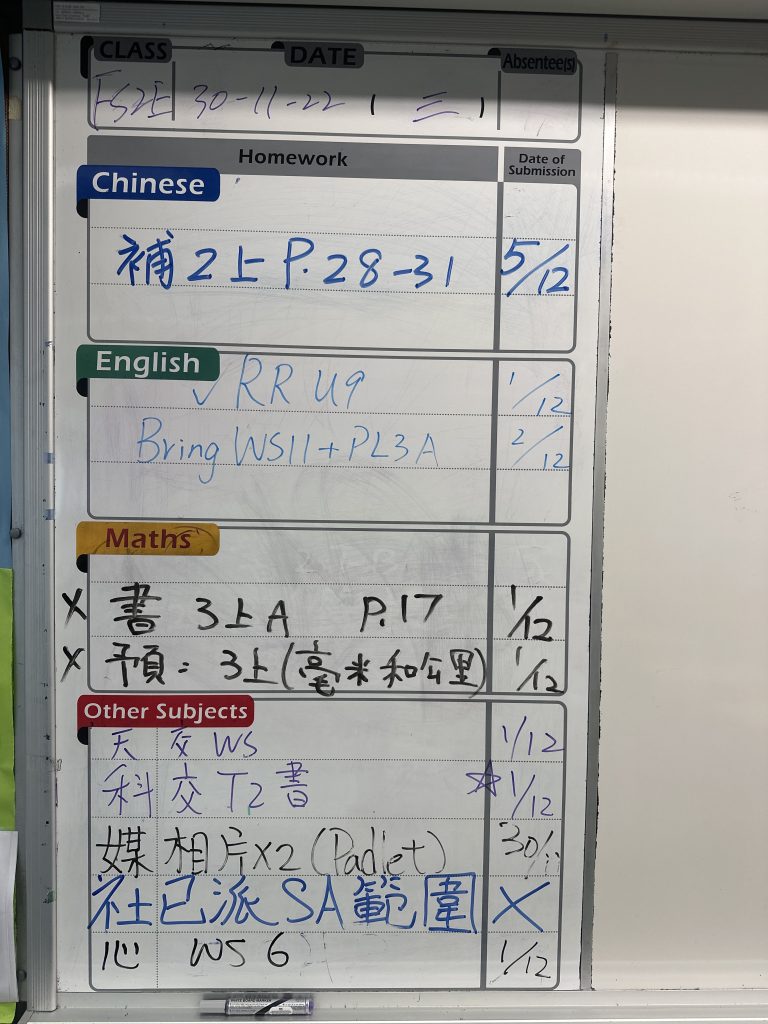 CLASS DATE Absentee(s)
30-11-22 ( 三 )
Homework Date of Submission
Chinese
補 2上 P.28-31 5/12
English
✓ RR U9 1/12
Bring WS11+PL3A 2/12
Maths
X 書 3上A P.17 1/12
X 預: 3上(毫米和公里) 1/12
Other Subjects
天 交 WS 1/12
科 交 T2 書 ☆ 1/12
媒 相片X2 (Padlet) 30/11
社 已派 SA範圍 X
心 WS 6 1/12